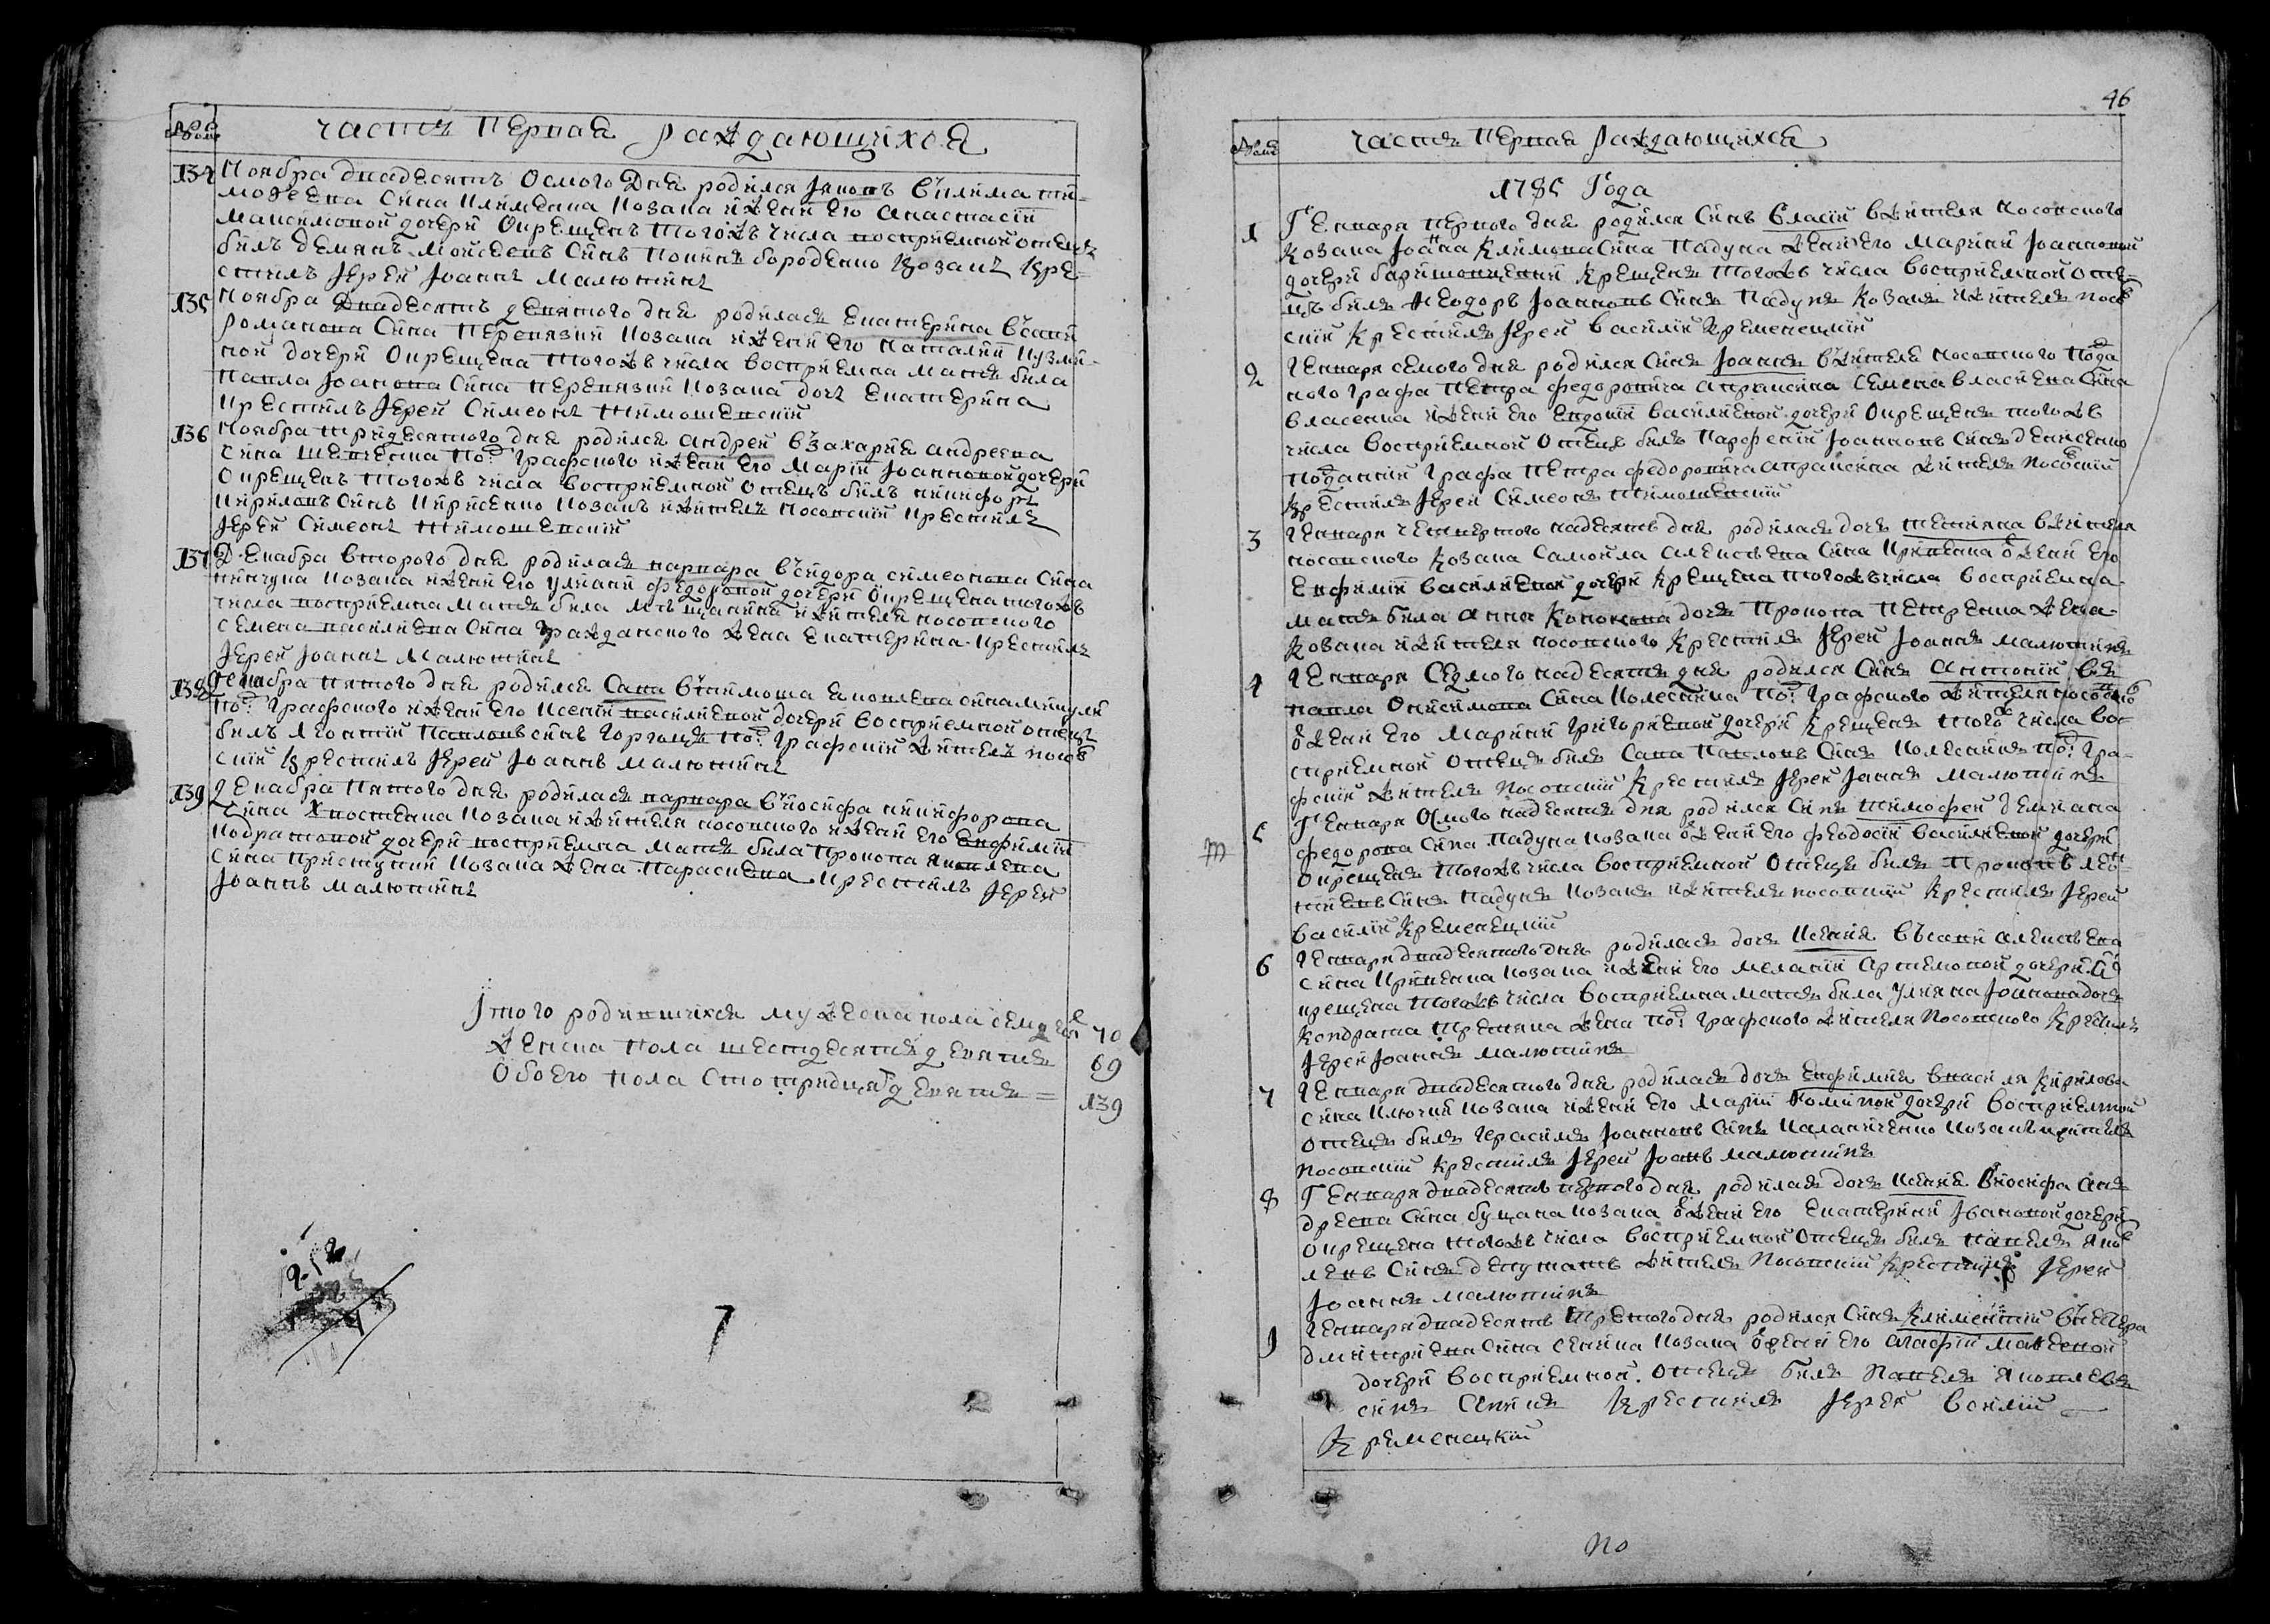 часть перваѧ раждающихсѧ
134 Ноября двадесять осмого дня родился Яковъ въ Клима Ти-
мофеева сина Клименка козака и жени его Анастасіи
Максимовой дочери окрещенъ тогожъ числа восприемной отецъ
билъ Демянъ Мойсеевъ синъ бороденко козакъ кре-
стилъ Іерей Іоаннъ Малютинъ
135 Ноября двадесять девятого дня родилася Екатерина въ
Романова сина Перевязки козака и жени его Наталіи Кузми-
ной дочери окрещена тогожъ числа восприемна матъ била
Павла Іоанова сина Перевязки козака дочъ Екатерина
крестилъ Іерей Симеонъ Тимошевскій
136 Ноября тридесятого дня родился Андрей въ Захарія Андреева
сина Шевченка под. графского и жени его Маріи Іоанновой дочери
окрещенъ тогожъ числа восприемной отецъ билъ Никифоръ
Кириловъ синъ Кириченко козакъ и жителъ носовскій крестилъ
Іерей Симеонъ Тимошевскій
137 Декабря второго дня родилася Варвара въ Сидора Симеонова сина
козака и жени его Улянии Федоровой дочери окрещена тогожъ
числа восприемна матъ била жителя носовского
Семена Василиева сина Гражданского жена Екатерина крестилъ
Іерей Іоаннъ Малютинъ
138 Декабря пятого дня родился Сава въ Тимоша Яковлева сина
под. графского и жени его Ксении Василиевой дочери восприемной отецъ
билъ Леонтій Павловъ синъ под. графскій жителъ носов
скій крестилъ Іерей Іоаннъ Малютинъ
139 Декабря пятого дня родилася Варвара въ Иосифа Никифорова
сина Хвостенка козака и жителя носовского и жени его Евфиміи
Кодратовой дочери восприемна матъ била Прокопа Яковлева
сина Приступки козака жена Параскева крестилъ Іерей
Іоаннъ Малютинъ
Итого родившихся мужеска пола семдесятъ 70
женска пола шестдесять девять 69
обоего пола сто тридцять девять = 139
46
часть перваѧ раждающихсѧ
1785 Года
1 Генваря первого дня родился синъ Власій в жителя носовского
козака Іоанна Климова сина Падуна жени его Марини Іоанновой
дочери крещенъ тогожъ числа восприемной оте-
цъ билъ Феодоръ Іоанновъ синъ Падунъ козакъ и жителъ носов
скій крестилъ Іерей Василій Кременецкій
2 Генваря семого дня родился синъ Іоаннъ в жителя носовского подда
ного графа Петра Федоровича Апраксина Семена Власиева сина
Власенка и жени его Евдокіи Василиевой дочери окрещенъ тогожъ
числа восприемной отецъ билъ Парфеній Іоанновъ синъ Денисенко
подданній графа Петра Федоровича Апраксина жителъ носовскій
крестилъ Іерей Симеонъ Тимошевскій
3 Генваря четвертого надесять дня родилася дочъ Тетяна в жителя
носовского козака Самойла Алексеева сина жени его
Евфиміи Василиевой дочери крещена тогожъ числа восприемна
матъ била Анна дочъ Прокопа Петренка жена
козака и жителя носовского крестилъ Іерей Іоаннъ Малютинъ
4 Генваря седмого надесять дня родился синъ Антоній въ
Павла Онисимова сина Колесника под. графского жителя носовского
жени его Марини Григориевой дочери крещенъ того числа вос-
приемной отецъ билъ Сава Павловъ синъ Колесникъ под. гра-
фскій жителъ носовскій крестилъ Іерей Іоаннъ Малютинъ
5 Генваря осмого надесять дня родился синъ Тимофей Демяна
Федорова сина Падуна козака жени его Феодосіи Василиевой дочери
окрещенъ тогожъ числа восприемной отецъ билъ Прокопъ Леон
тиевъ синъ Падунъ козакъ и жителъ носовскій крестилъ Іерей
Василій Кременецкій
6 Генваря двадесятого дня родилася дочъ Ксенія въ Сави Алексеева
сина козака и жени его Меланіи Артемовой дочери о
крещена тогожъ числа восприемна матъ била Уляна Іоанова дочъ
Кондрата жена под. графского жителя носовского крестилъ
Іерей Іоаннъ Малютинъ
7 Генваря двадесятого дня родилася дочъ Евфимія в Василя Кирилова
сина Ключки козака и жени его Маріи Фоминой дочери восприемной
отецъ билъ Герасимъ Іоанновъ синъ козакъ и жителъ
носовскій крестилъ Іерей Іоанъ Малютинъ
8 Генваря двадесять первого дня родилася дочъ Ксенія в Иосифа Ан-
дреева сина Буцана козака жени его Екатерини Івановой дочери
окрещена тогожъ числа восприемной отецъ билъ Павелъ Яков
левъ синъ жителъ носовскій крестилъ Іерей
Іоаннъ Малютинъ
9 Генваря двадесять третого дня родился синъ Климентій въ Нестера
Дмитриева сина Сенина козака жени его Агафіи Мавеевой
дочери восприемной отецъ билъ Павелъ Яковлевъ
синъ крестилъ Іерей Василій
Кременецкій